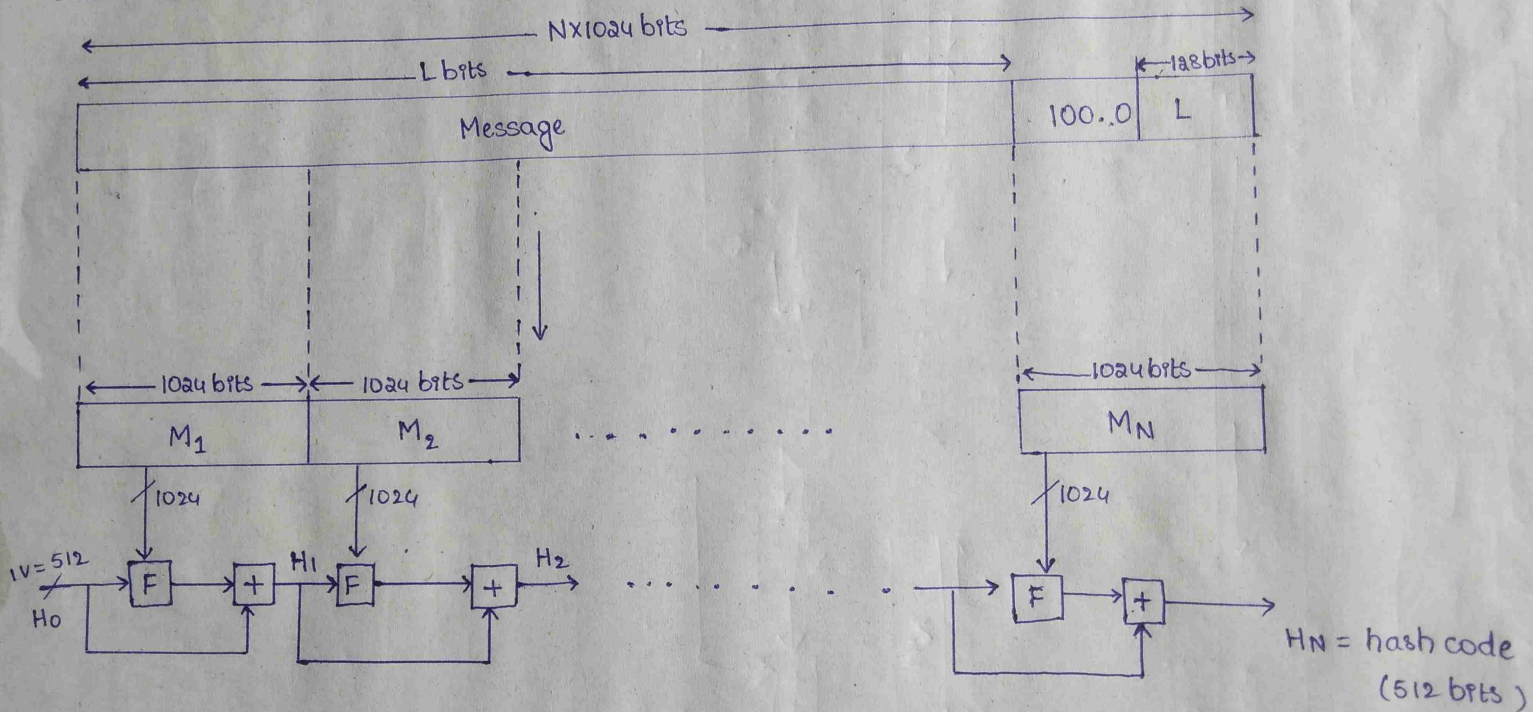 N×1024 bits
L bits
128bits
Message
100..0
L
1024 bits
1024 bits
1024bits
M1
M2
MN
1024
1024
1024
IV=512
H0
F
+
H1
F
+
H2
F
+
HN = hash code
(512 bits)